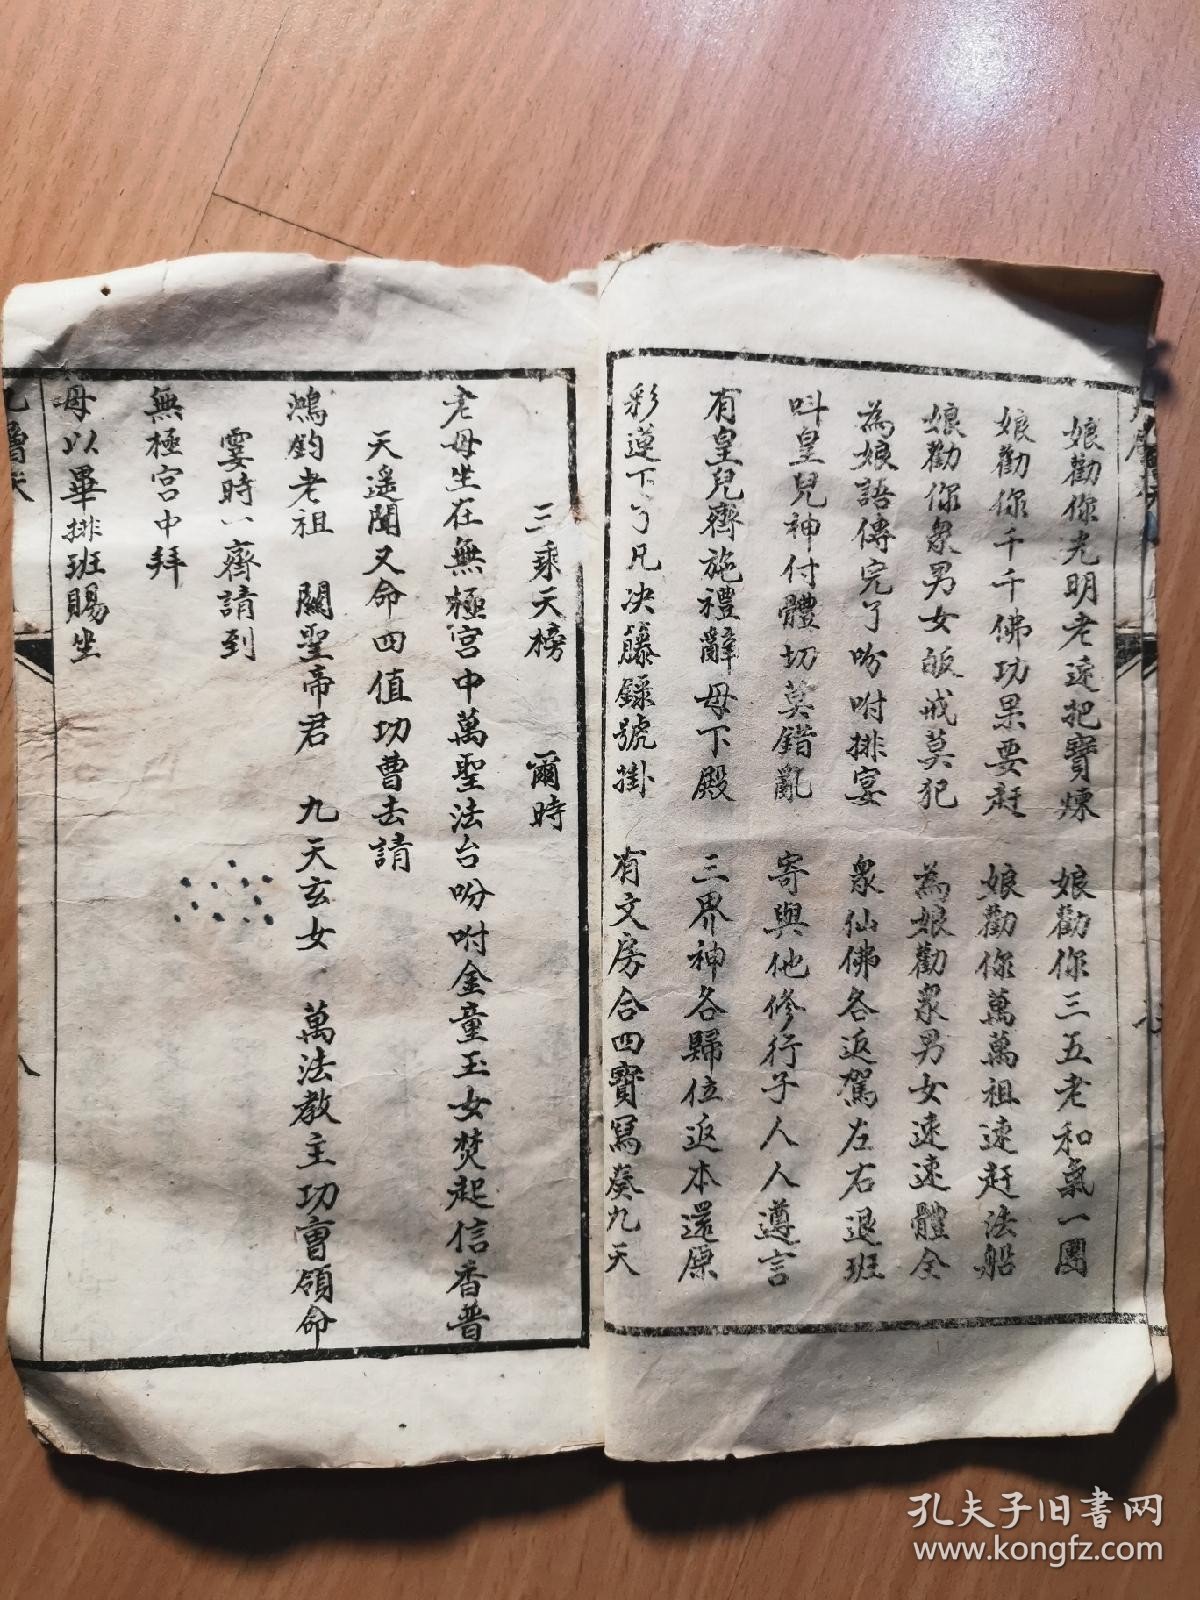 娘勸你光明老送把寶煉　娘勸你三五老和氣一團
娘勸你千千佛功果要赶　娘勸你萬萬祖速赶法船
娘勸你衆男女皈戒莫犯　為娘勸衆男女速速體全
為娘語傳完了吩咐排宴　衆仙佛各返駕左右退班
呌皇兒神付體切莫錯亂　寄與他修行子人人遵言
有皇兒齊施禮辭母下殿　三界神各歸位返本還原
彩蓮下了凡决籐錄號掛　有文房合四寶冩奏九天
三乘天榜　爾時
老母坐在無極宮中萬聖法台吩咐金童玉女焚起信香普
天遥聞又命四值功曹去請
鴻鈞老祖　關聖帝君　九天玄女　萬法教主功曹領命
霎時一齊請到
無極宮中拜
母以畢排班賜坐
八
孔夫子旧书网
www.kongfz.com